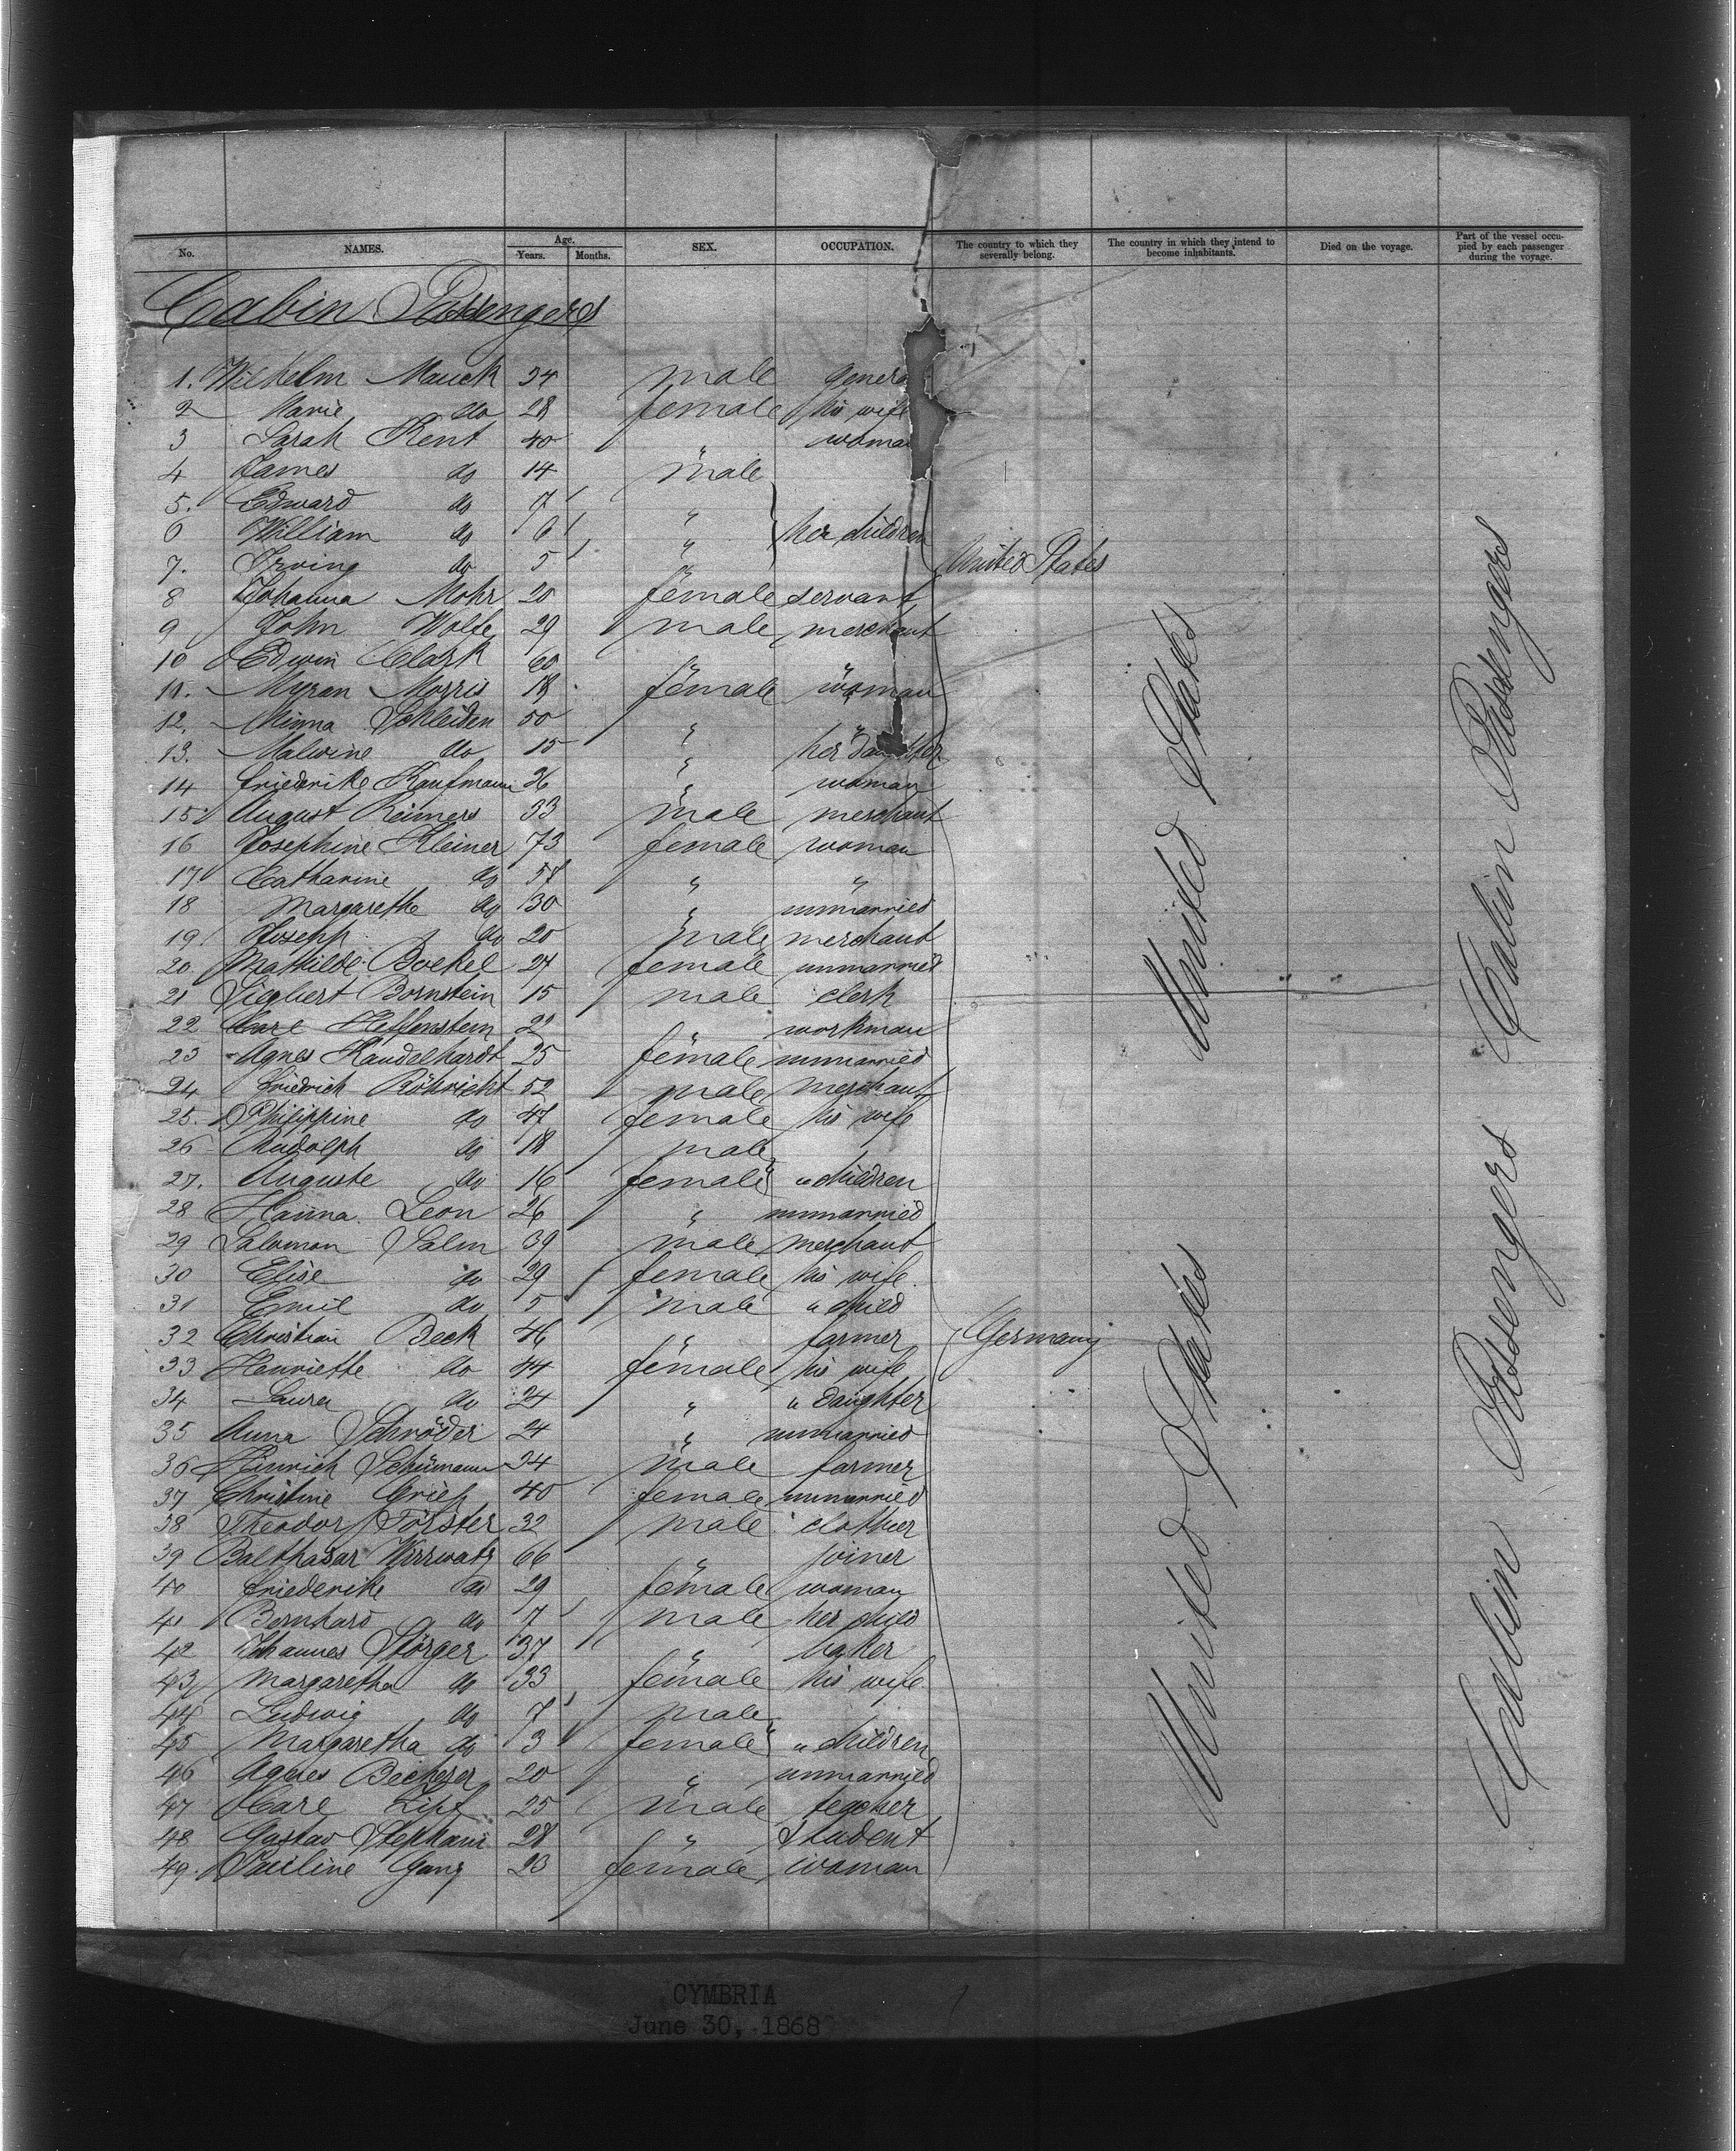 No. NAMES. Age. Years. Months. SEX. OCCUPATION. The country to which they severally belong. The country in which they intend to become inhabitants. Died on the voyage. Part of the vessel occupied by each passenger during the voyage.
Cabin Passengers
1. Wilhelm Mauck 34 male genera
2 Marie do 28 female his wife
3 Sarah Kent 40 " woman
4 James do 14 male
5. Edward do 7
6 William do 6 " her children
7. Irving do 5 " United States
8 Johanna Mohr 20 female servant
9 John Wolfe 29 male merchant
10 Edwin Clark 60 " "
11. Myran Morris 18 female woman
12. Minna Schleiden 50 " "
13. Malwine do 15 " her daughter
14 Friederike Kaufmann 36 " woman
15. August Reimers 33 male merchant
16 Josephine Kleiner 73 female woman
17 Catharine do 57 " "
18 Margarethe do 30 " unmarried
19 Joseph do 20 male merchant
20 Mathilde Boekel 27 female unmarried
21 Siegbert Bornstein 15 male clerk
22 Carl Heffenstein 22 " workman
23 Agnes Kaudelhardt 25 female unmarried
24 Friedrich Röhricht 52 male merchant
25. Philippine do 47 female his wife
26 Rudolph do 18 male
27. Auguste do 16 female " children
28 Hanna Leon 26 " unmarried
29 Salomon Salm 39 male merchant
30 Elise do 29 female his wife
31 Emil do 5 male " child
32 Christian Beck 46 " farmer Germany
33 Henriette do 44 female his wife
34 Laura do 24 " " daughter
35 Anna Schröder 24 " unmarried
36 Hinrich Schümann 24 male farmer
37 Christine 40 female unmarried
38 Theodor Förster 32 male clothier
39 Balthasar 66 " joiner
40 Friederike do 29 female woman
41 Bernhard do 7 male her child
42 Johannes Störger 37 " baker
43 Margaretha do 33 female his wife
44 Ludwig do 7 male
45 Margaretha do 3 female " children
46 Agnes Becherer 20 " unmarried
47 Carl Lipf 25 male teacher
48 Gustav Stephani 28 " student
49. Pauline Gang 23 female woman
United States
United States
Cabin Passengers
Cabin Passengers
CYMBRIA
June 30, 1868
1